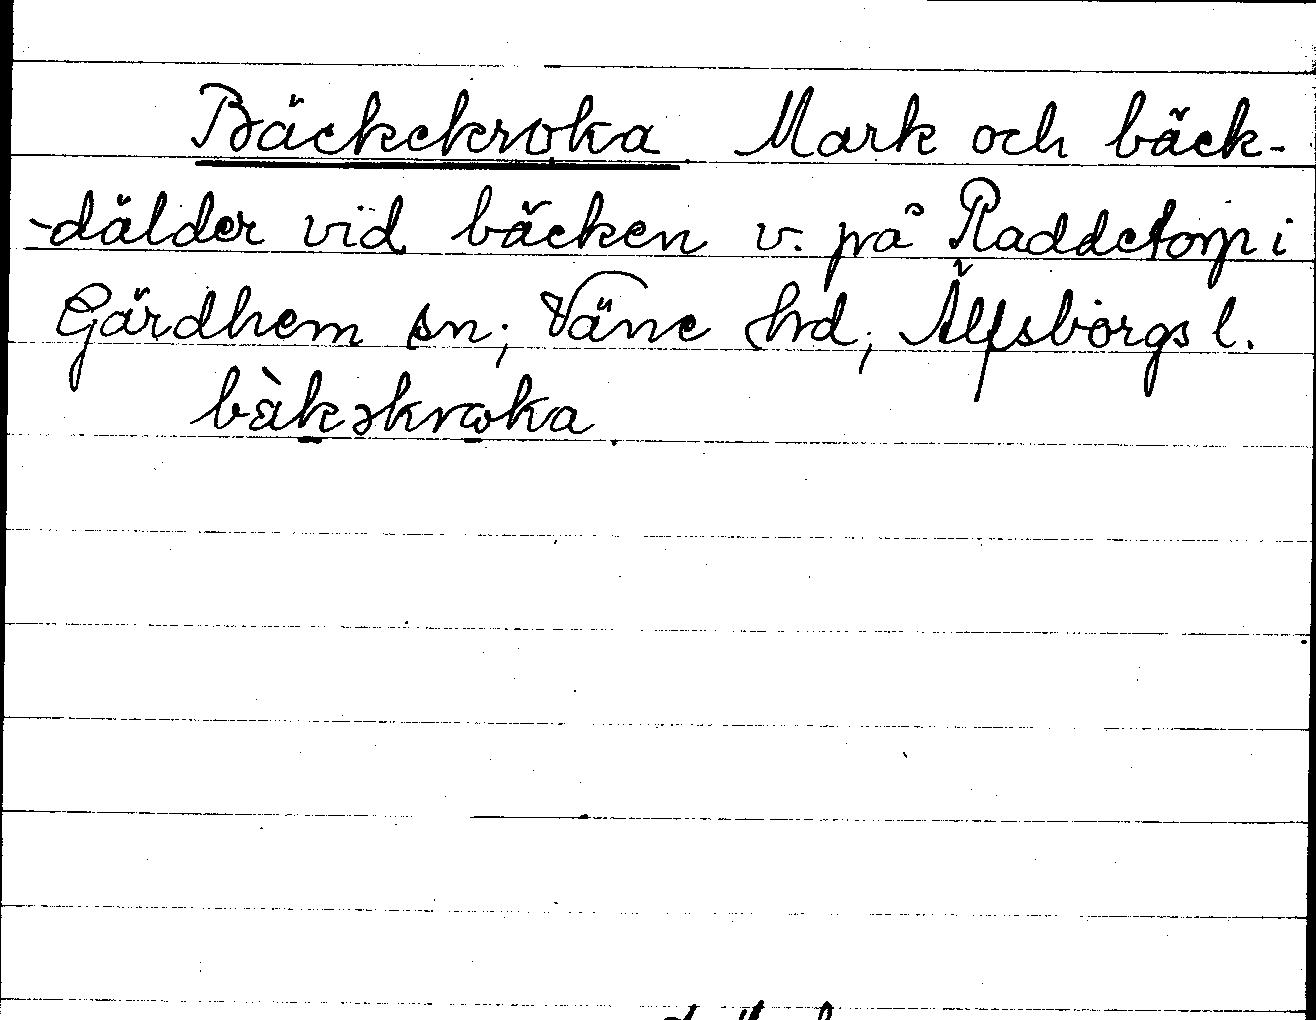 Bäckekroka Mark och bäck-
-dälder vid bäcken v. på Raddetorp i
Gärdhem sn; Väne hd; Älfsborgs l.
bàkəkroka